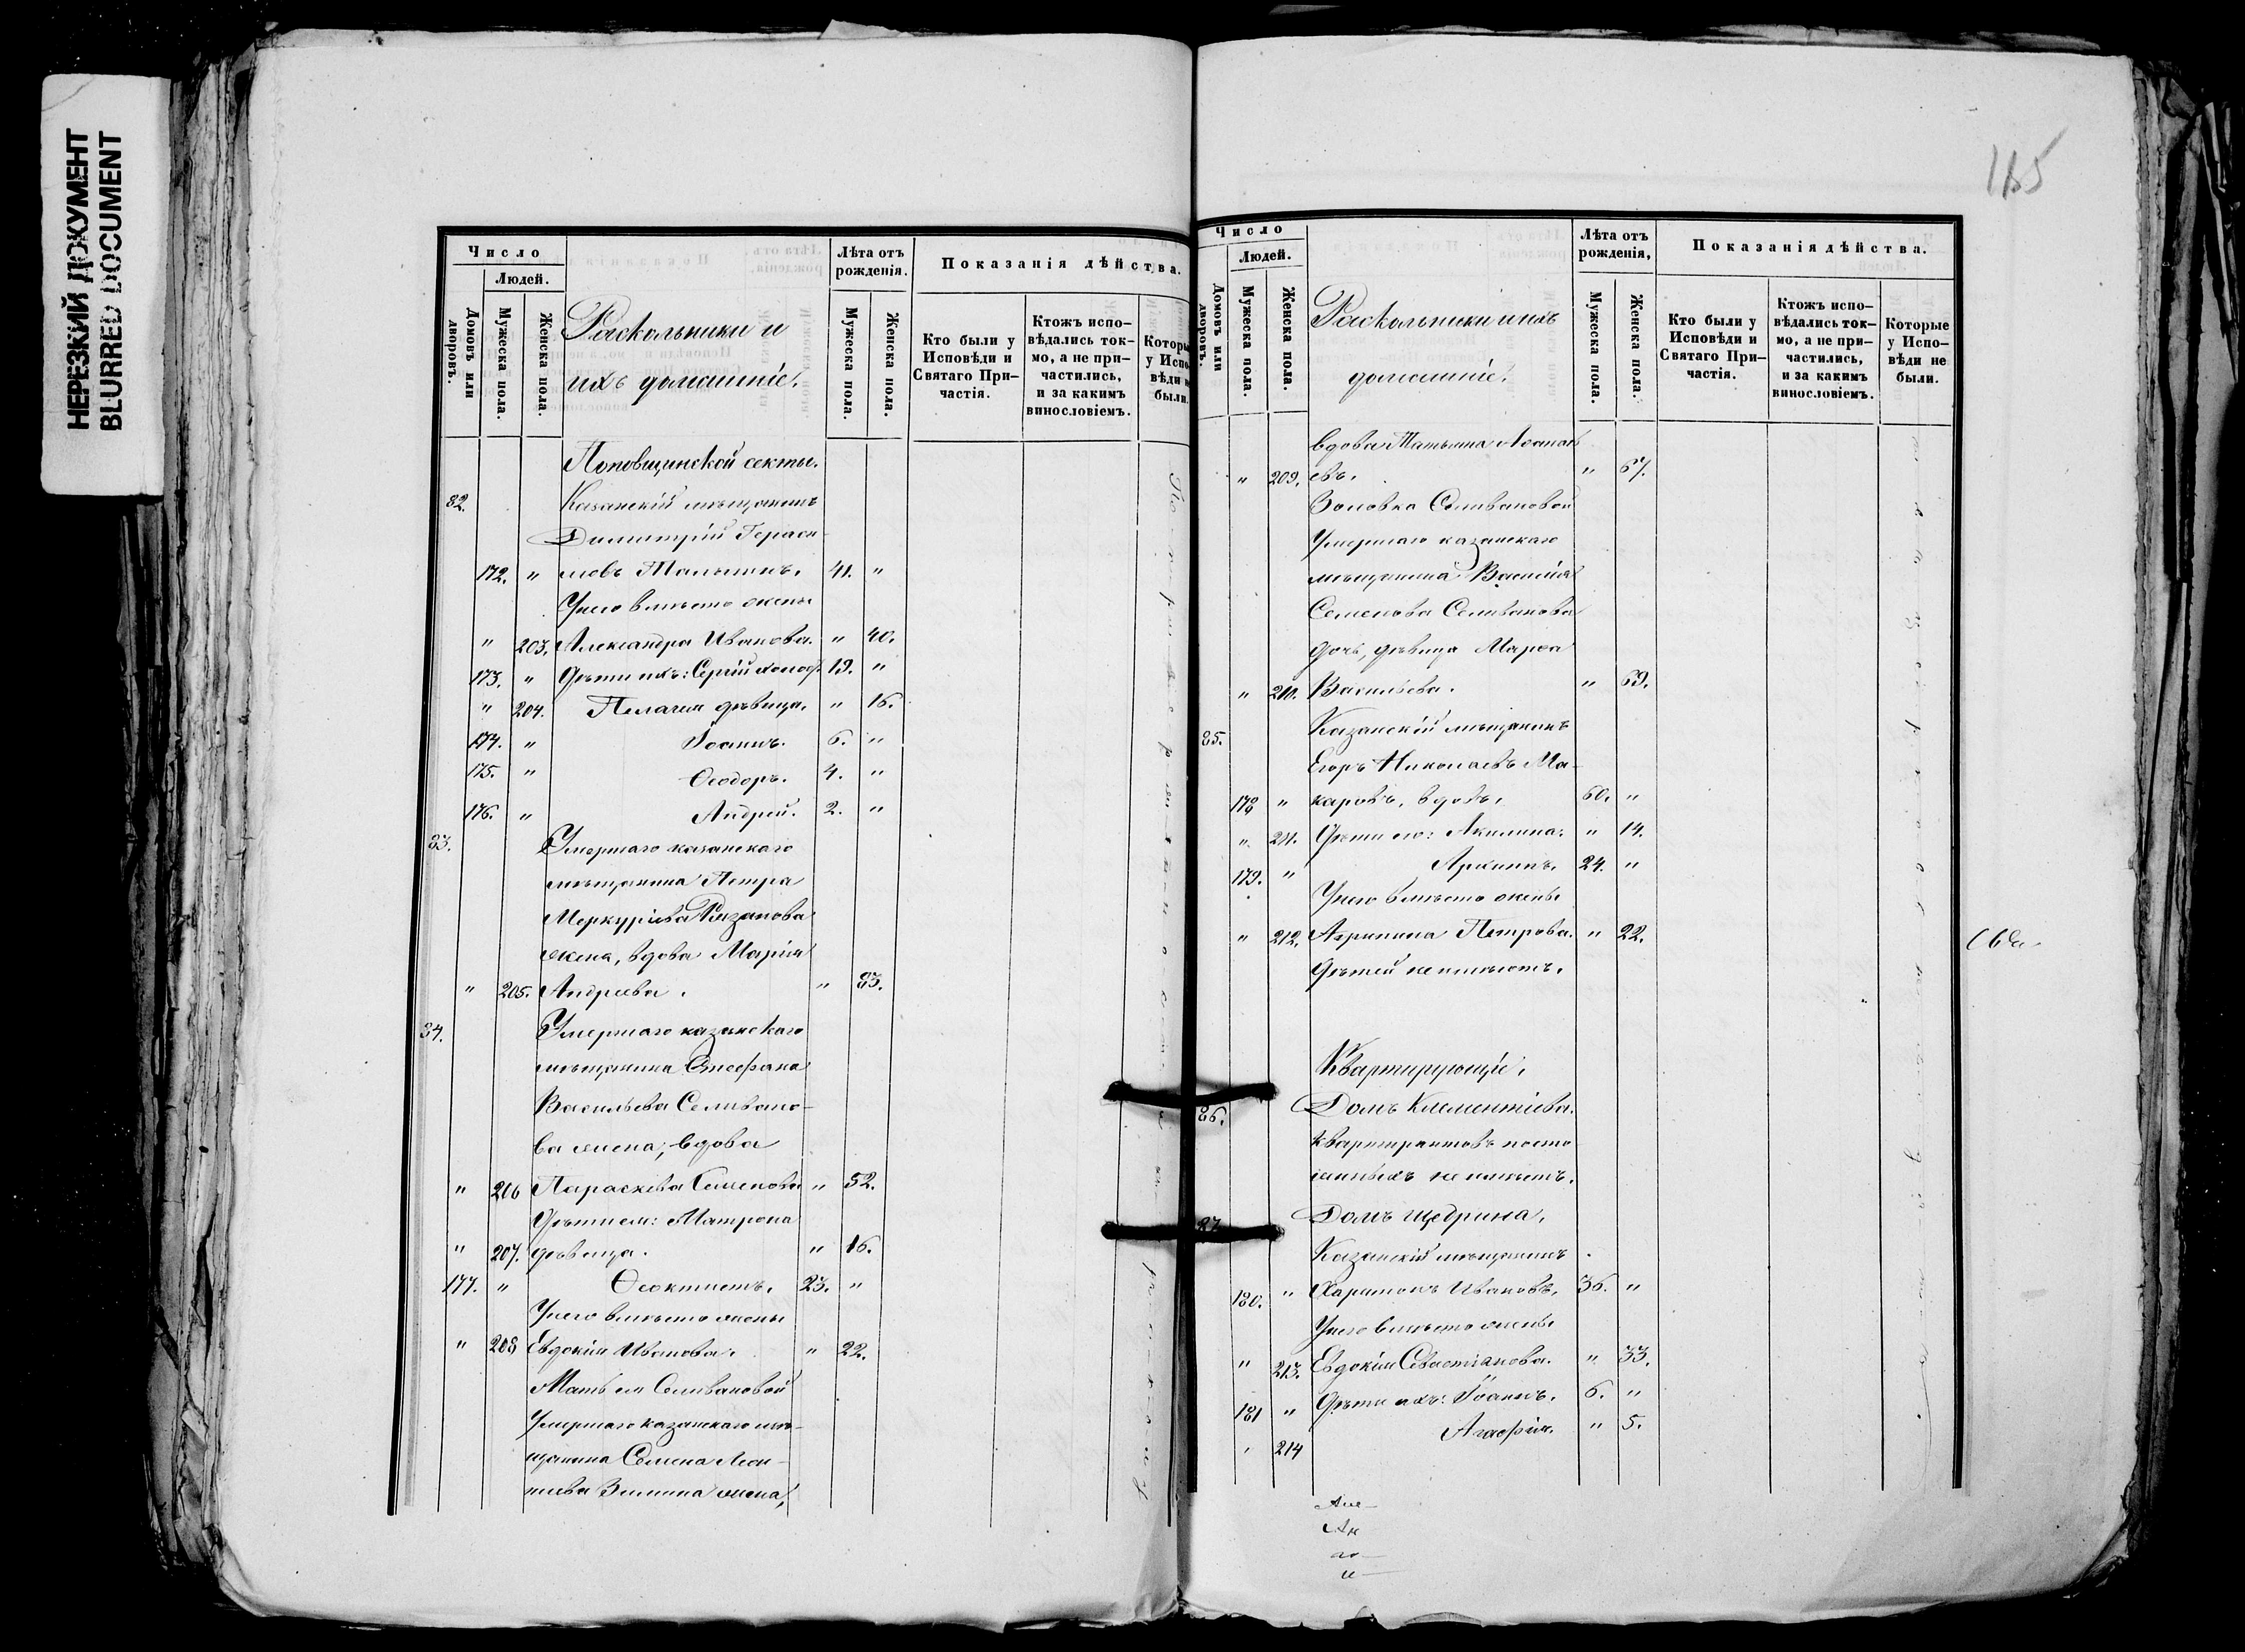 НЕРЕЗКИЙ ДОКУМЕНТ
BLURRED DOCUMENT
Число
Людей.
Домовъ или дворовъ.
Мужеска пола.
Женска пола.
Раскольники и
ихъ домашніе.
Лѣта отъ рожденія.
Мужеска пола.
Женска пола.
Показанія дѣйства.
Кто были у Исповѣди и Святаго Причастія.
Ктожъ исповѣдались токмо, а не причастились, и за какимъ винословіемъ.
Которые у Исповѣди не были.
Поповщинской секты.
82. Казанскій мѣщанинъ
Димитрій Гераси-
172. " мовъ Малининъ. 41. "
У него вмѣсто жены
" 203. Александра Иванова. " 40.
173. " Дѣти ихъ: Сергій холос. 19. "
" 204. Пелагея дѣвица. " 16.
174. " Іоаннъ. 6. "
175. " Ѳеодоръ. 4. "
176. " Андрей. 2. "
83. Умершаго казанскаго
мѣщанина Петра
Меркуріева Рязанова
жена, вдова Марія
" 205. Андреева. " 83.
84. Умершаго казанскаго
мѣщанина Стефана
Васильева Селивано-
ва жена, вдова
" 206 Параскева Семенова " 52.
Дѣти ея: Матрона
" 207. дѣвица. " 16.
177. " Ѳеоктистъ. 23. "
У него вмѣсто жены
" 208 Евдокія Иванова. " 22.
Мать ея Селивановой
Умершаго казанскаго мѣ-
щанина Семена Леон-
тіева Зимина жена,
165
Число
Людей.
Домовъ или дворовъ.
Мужеска пола.
Женска пола.
Раскольники и ихъ
домашніе.
Лѣта отъ рожденія,
Мужеска пола.
Женска пола.
Показанія дѣйства.
Кто были у Исповѣди и Святаго Причастія.
Ктожъ исповѣдались токмо, а не причастились, и за какимъ винословіемъ.
Которые у Исповѣди не были.
вдова Татьяна
" 209. " 67.
Золовка Селивановой
Умершаго казанскаго
мѣщанина Василія
Семенова Селиванова
дочь, дѣвица Марѳа
" 210. Васильева. " 69.
85. Казанскій мѣщанинъ
Егоръ Николаевъ Ма-
178 " каровъ, вдовъ, 60. "
" 211. Дѣти его: Акилина. " 14.
179. " 24. "
У него вмѣсто жены
" 212. Агрипина Петрова. " 22.
Дѣтей не имѣютъ.
Квартирующіе.
86. Домъ Клементіева.
Квартирантовъ посто
янныхъ не имѣетъ.
87. Домъ Щедрина.
Казанскій мѣщанинъ
180. " Харитонъ Ивановъ. 36. "
У него вмѣсто жены
" 213. Евдокія Севастіанова. " 33.
181 " Дѣти ихъ: Іоаннъ. 6. "
" 214 Агафія. " 5.